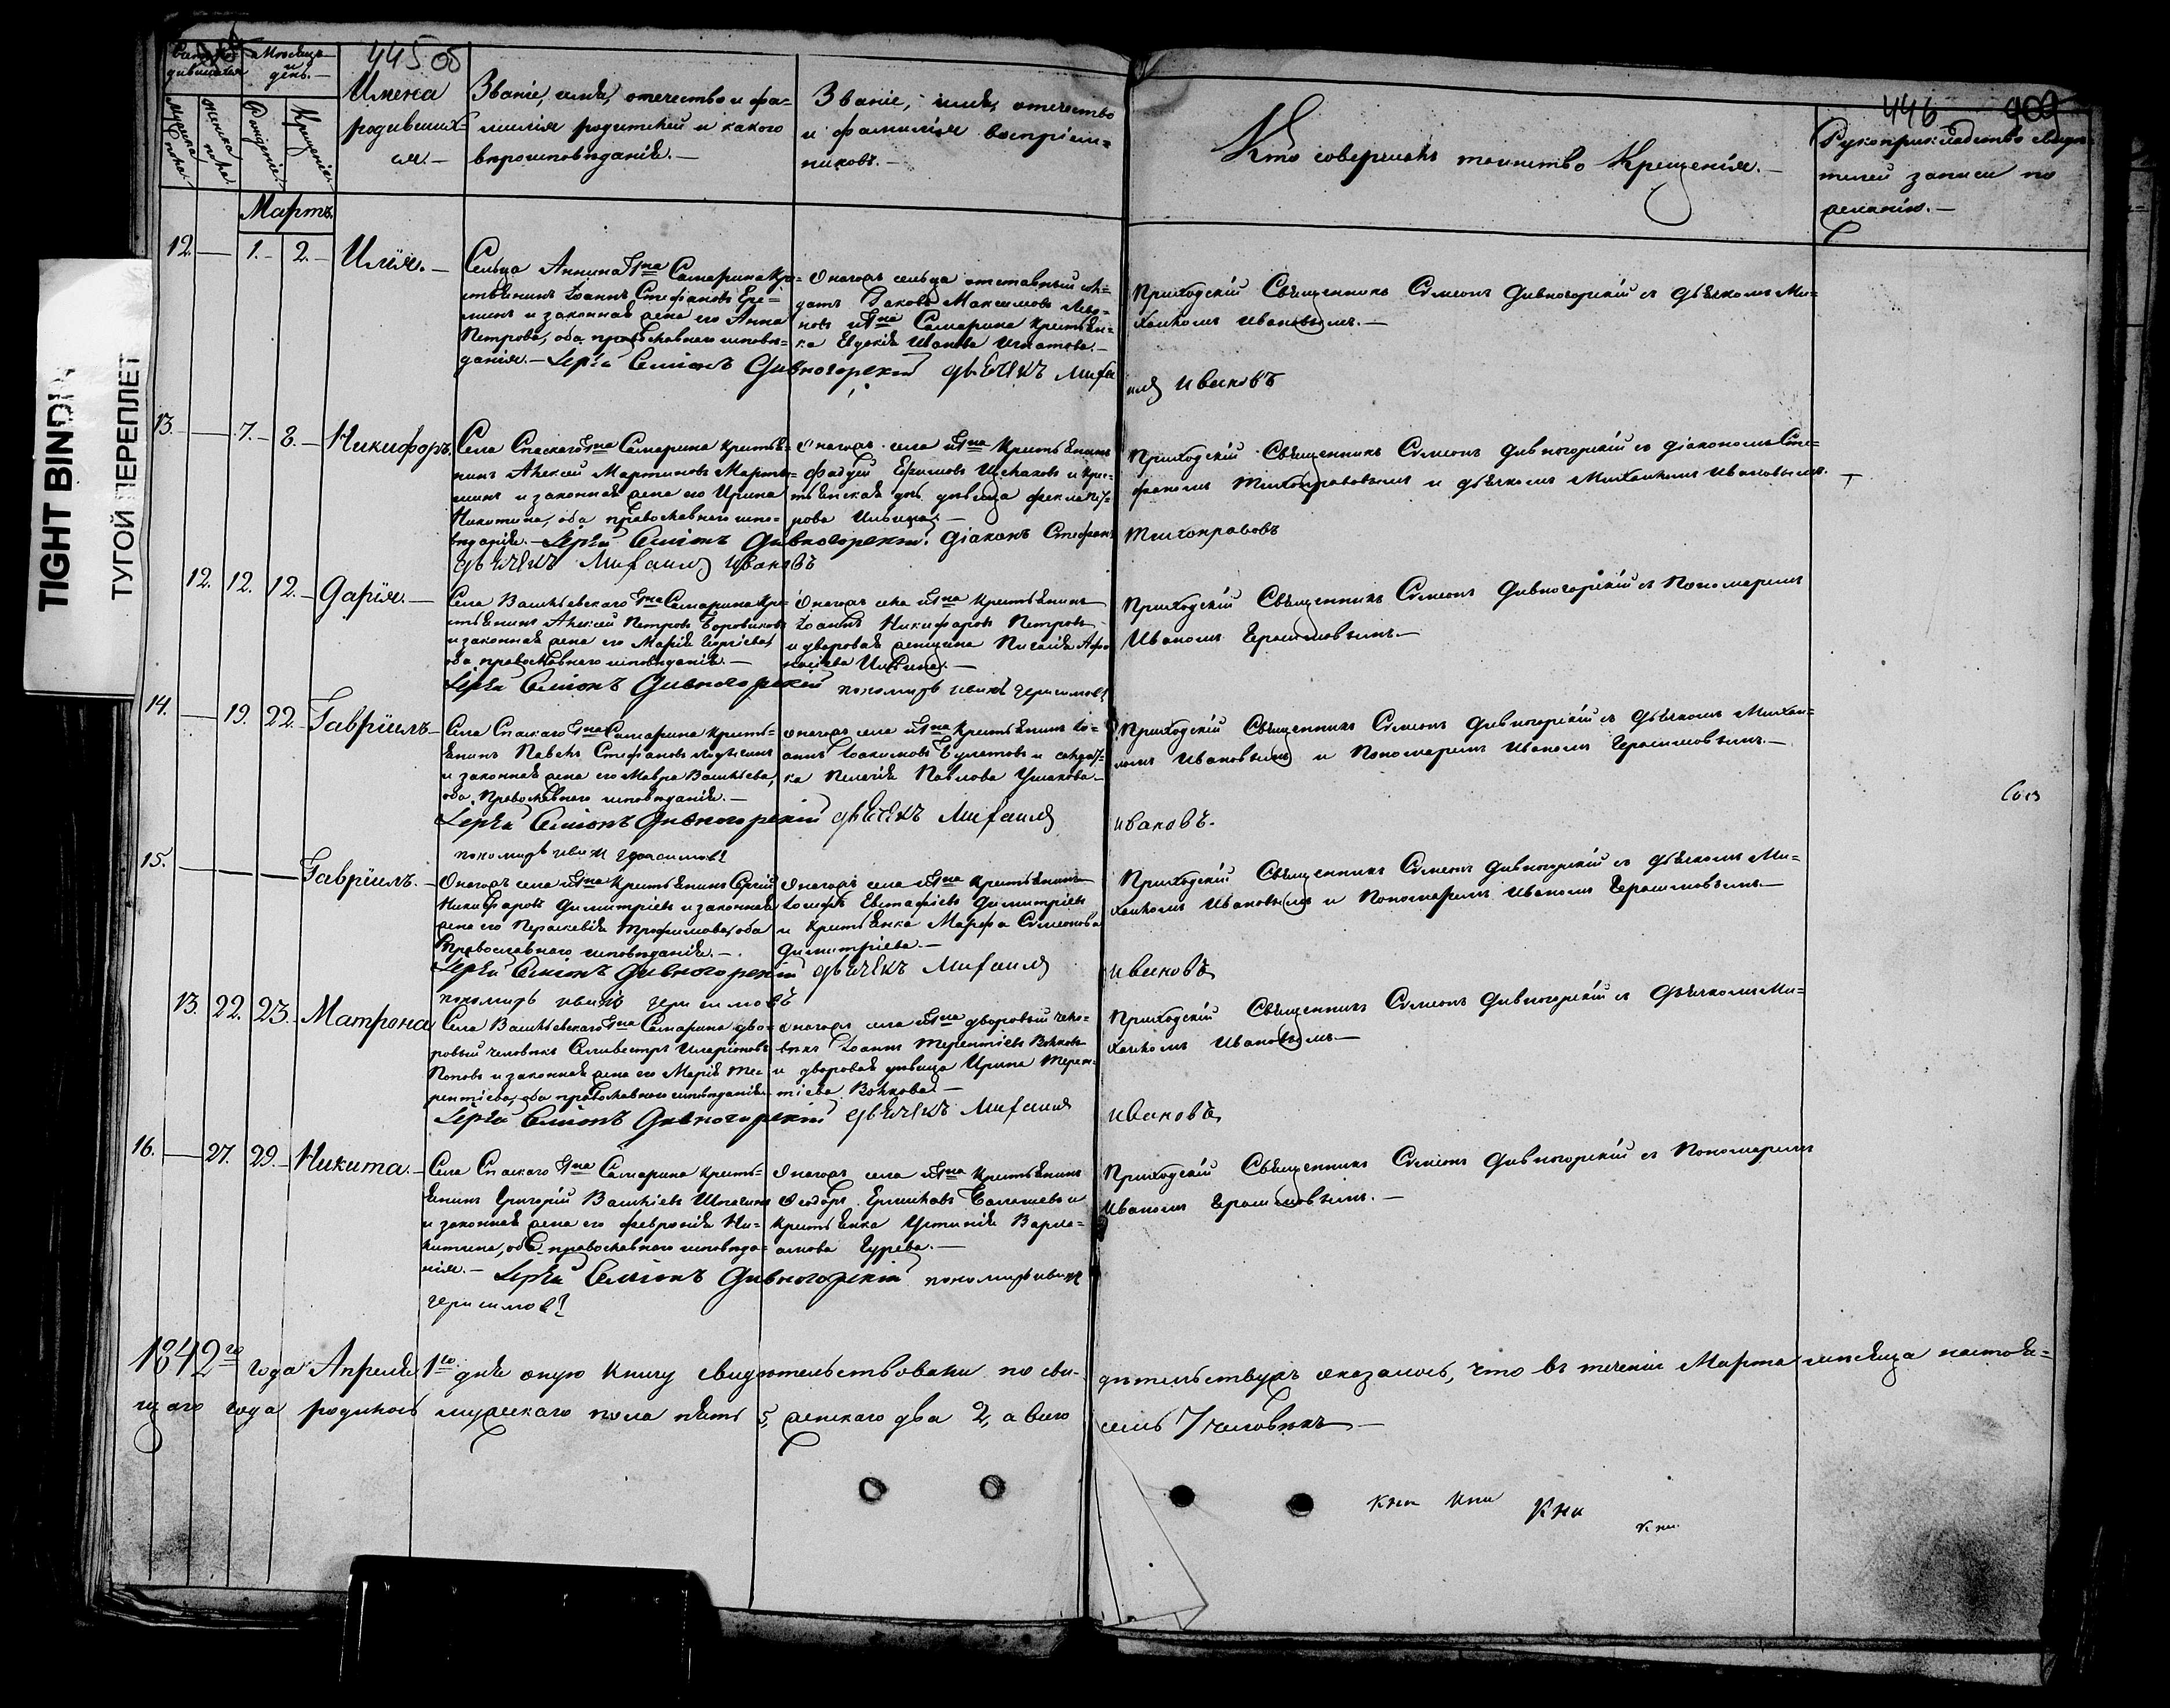 TIGHT BINDI
ТУГОЙ ПЕРЕПЛЕТ
44505
446
Мѣсяцъ
и
день.—
Мужеска пола.
Женска пола.
Рожденія.
Крещенія.
Имена
родивших-
ся.—
Званіе, имя, отечество и фа=
милія родителей и какого
вѣроисповѣданія.—
Званіе, имя, отечество
и фамилія воспріем=
никовъ.—
Кто совершалъ таинство Крещенія.—
Рукоприкладство
телей записи по
желанію.—
Мартъ.
12. — 1.- 2.- Илія.—
Сельца Аннина Гна Самарина кре=
стьянинъ Іоаннъ Стефановъ Ере=
минъ и законная жена его Анна
Петрова, оба православнаго исповѣ=
данія.— Іерей Симеонъ Дивногорскій дьячекъ Миха
Онагожъ сельца отставный сол=
датъ Іаковъ Максимовъ
новъ и Гна Самарина крестьян=
ка Евдокія Иванова Игнатова.—
Приходскій Священникъ Симеонъ Дивногорскій съ дьячкомъ Ми=
хаиломъ Ивановымъ.—
илъ Ивановъ
13. — 7.- 8.- Никифоръ.
Села Спаскаго Гна Самарина крестья=
нинъ Алексей Мартиновъ Марты=
шинъ и законная жена его Ирина
Никитина, оба православнаго испо=
вѣданія.— Іерей Симеонъ Дивногорскій. Діаконъ Стефанъ
дьячекъ Михаилъ Ивановъ
Онагожъ села и Гна крестьянинъ
Фаддей Ермиловъ и крес=
тьянская дочь дѣвица Фекла
рова Ильина.—
Приходскій Священникъ Симеонъ Дивногорскій съ діакономъ Сте=
фаномъ Тихонравовымъ и дьячкомъ Михаиломъ Ивановымъ.
Тихонравовъ
12. 12. 12.- Дарія.—
Села Васильевскаго Гна Самарина кре=
стьянинъ Алексей Петровъ Боровиковъ
и законная жена его Марія Георгіева,
оба православнаго исповѣданія.—
Іерей Симеонъ Дивногорскій пономарь Иванъ Герасимовъ
Онагожъ села и Гна крестьянинъ
Іоаннъ Никифоровъ Петровъ
и дворовая женщина Пелагія Афа
насіева Ильина.—
Приходскій Священникъ Симеонъ Дивногорскій съ Пономаремъ
Иваномъ Герасимовымъ.—
14. — 19. 22.- Гавріилъ.—
Села Спаскаго Гна Самарина кресть=
янинъ Павелъ Стефановъ
и законная жена его Мавра Васильева,
оба Православнаго исповѣданія.—
Іерей Симеонъ Дивногорскій дьячекъ Михаилъ
пономарь Иванъ Герасимовъ
Онагожъ села и Гна крестьянинъ Іо=
аннъ Іоакимовъ Булатовъ и солдат=
ка Пелагія Павлова Ушакова.—
Приходскій Священникъ Симеонъ Дивногорскій съ дьячкомъ Михаи=
ломъ Ивановымъ и Пономаремъ Иваномъ Герасимовымъ.—
Ивановъ.
15. — — — Гавріилъ.—
Онагожъ села и Гна крестьянинъ Сергій
Никифоровъ Димитріевъ и законная
жена его Параскевія Трофимова, оба
Православнаго исповѣданія.—
Іерей Симеонъ Дивногорскій дьячекъ Михаилъ
пономарь Иванъ Герасимовъ
Онагожъ села и Гна крестьянинъ
Іосифъ Евстафіевъ Димитріевъ
и крестьянка Марфа Симеонова
Димитріева.—
Приходскій Священникъ Симеонъ Дивногорскій съ дьячкомъ Ми=
хаиломъ Ивановымъ и Пономаремъ Иваномъ Герасимовымъ.—
Ивановъ
13. 22. 23.- Матрона
Села Васильевскаго Гна Самарина дво=
ровый человѣкъ Селивестръ Иларіоновъ
Поповъ и законная жена его Марія Те=
рентіева, оба православнаго исповѣданія.—
Іерей Симеонъ Дивногорскій дьячекъ Михаилъ
Онагожъ села и Гна дворовый чело=
вѣкъ Іоаннъ Терентіевъ Волковъ
и дворовая дѣвица Ирина Терен=
тіева Волкова.—
Приходскій Священникъ Симеонъ Дивногорскій съ Дьячкомъ Ми=
хаиломъ Ивановымъ.—
Ивановъ
16. — 27. 29.- Никита.—
Села Спаскаго Гна Самарина кресть=
янинъ Григорій Васильевъ
и законная жена его Февронія Ни=
китина, оба православнаго исповѣда=
нія.— Іерей Симеонъ Дивногорскій пономарь Иванъ
Герасимовъ
Онагожъ села и Гна крестьянинъ
Ѳеодоръ Ермиловъ Балашевъ и
крестьянка Устинія Варла=
амова Гурева.—
Приходскій Священникъ Симеонъ Дивногорскій съ Пономаремъ
Иваномъ Герасимовымъ.—
1842го года Апреля 1го дня оную книгу свидѣтельствовали по сви- дѣтельствужъ оказалось, что въ теченіи Марта мѣсяца настоя=
щаго года родилось мужескаго пола пять 5, женскаго два 2, а всего семь 7 человѣкъ.—
Кни Кни Кни Кни